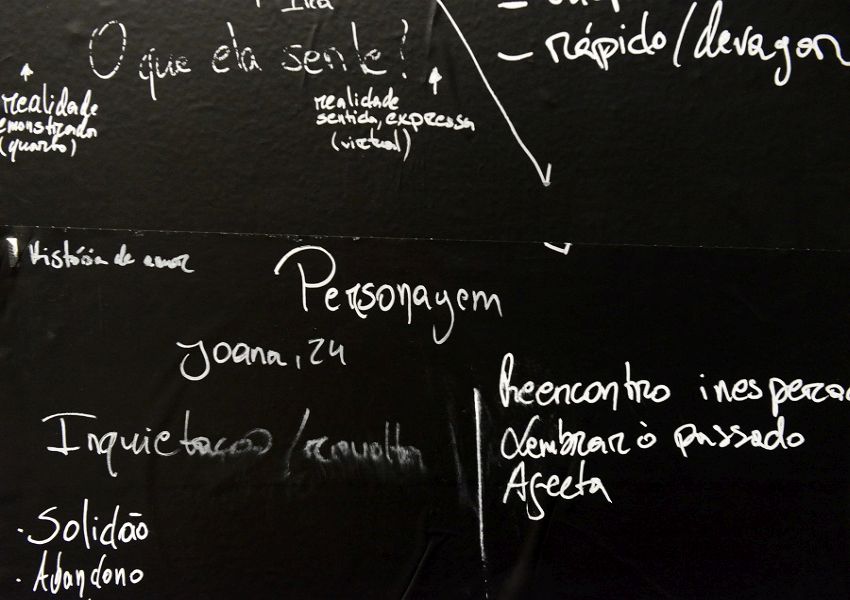 Ira
– rápido/devagar
O que ela sente?
realidade
demonstrada
(quarto)
realidade
sentida, expressa
(virtual)
História de amor
Personagem
Joana, 24
Inquietação/revolta
· Solidão
· Abandono
Reencontro inespera
Lembrar o passado
Afecta